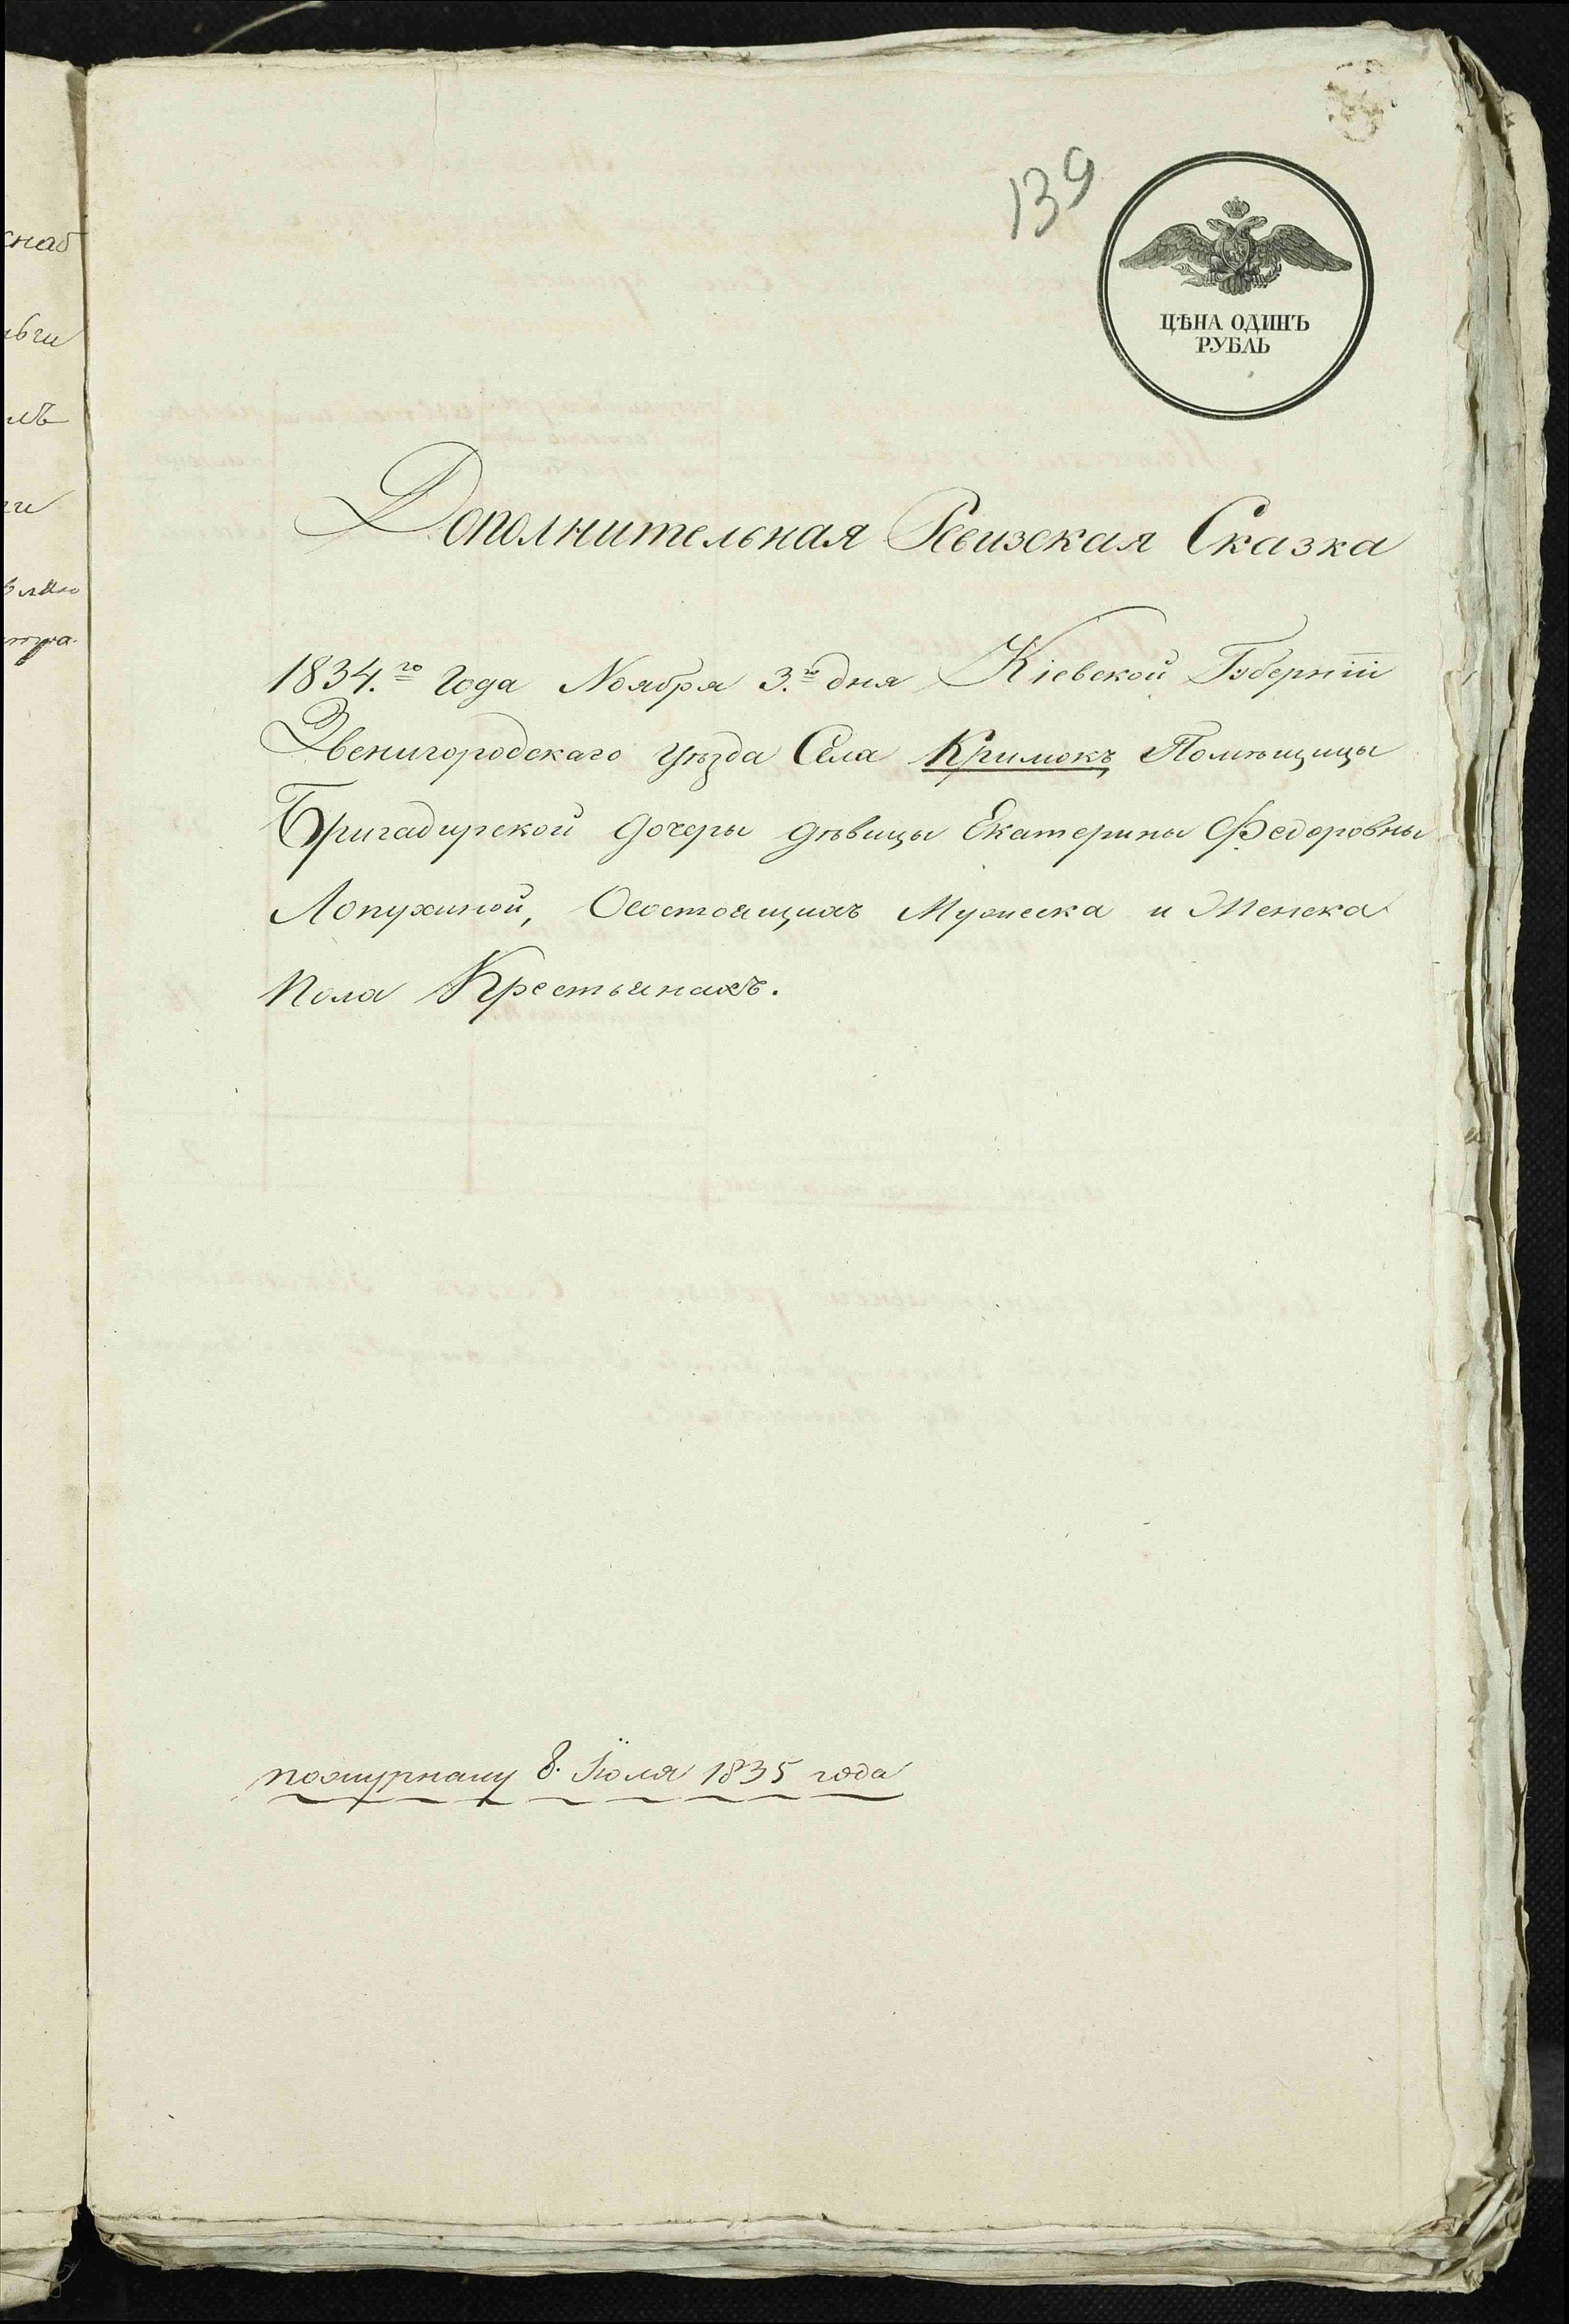 139
ЦѢНА ОДИНЪ
РУБЛЬ
Дополнительная Ревизская Сказка
1834.го Года Ноября 3.го дня Кіевской Губерніи
Звенигородскаго уѣзда Села Кримокъ Помѣщицы
Бригадирской дочеры дѣвицы Екатерины Федоровны
Лопухиной, Осостоящихъ Мужеска и Женска
пола Крестьянахъ.
пожурналу 8. Іюля 1835 года